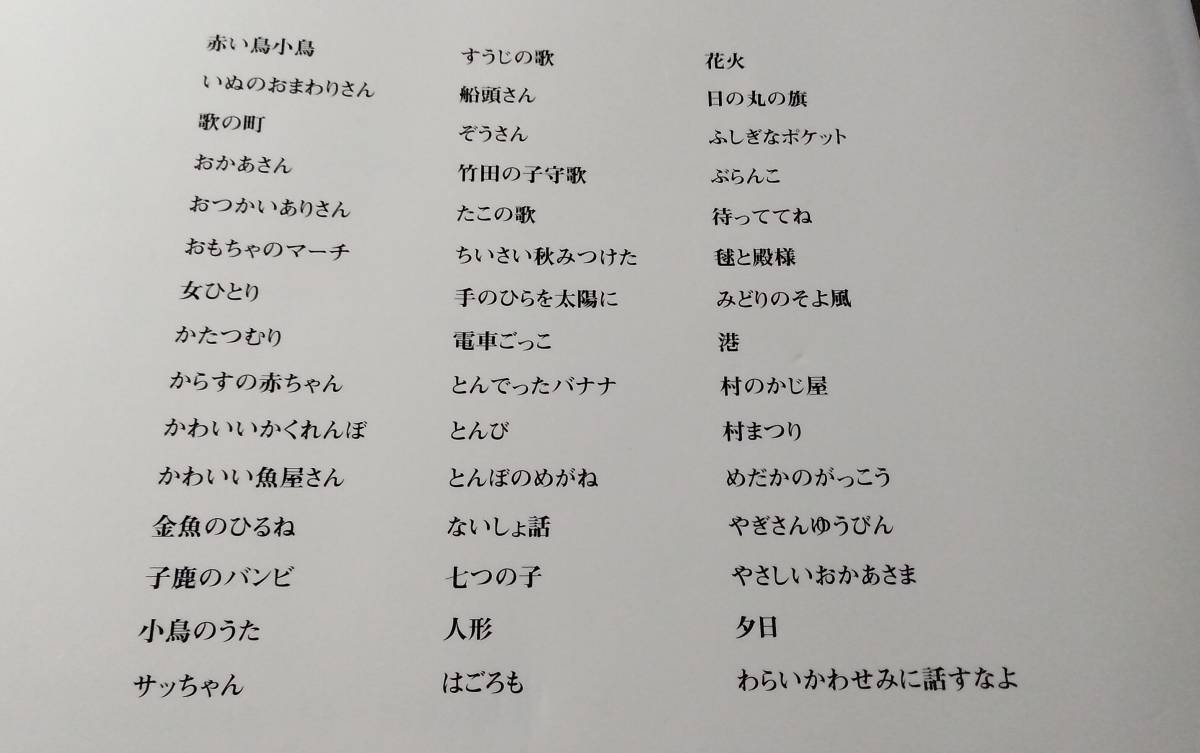 赤い鳥小鳥
いぬのおまわりさん
歌の町
おかあさん
おつかいありさん
おもちゃのマーチ
女ひとり
かたつむり
からすの赤ちゃん
かわいいかくれんぼ
かわいい魚屋さん
金魚のひるね
子鹿のバンビ
小鳥のうた
サッちゃん
すうじの歌
船頭さん
ぞうさん
竹田の子守歌
たこの歌
ちいさい秋みつけた
手のひらを太陽に
電車ごっこ
とんでったバナナ
とんび
とんぼのめがね
ないしょ話
七つの子
人形
はごろも
花火
日の丸の旗
ふしぎなポケット
ぶらんこ
待っててね
毬と殿様
みどりのそよ風
港
村のかじ屋
村まつり
めだかのがっこう
やぎさんゆうびん
やさしいおかあさま
夕日
わらいかわせみに話すなよ